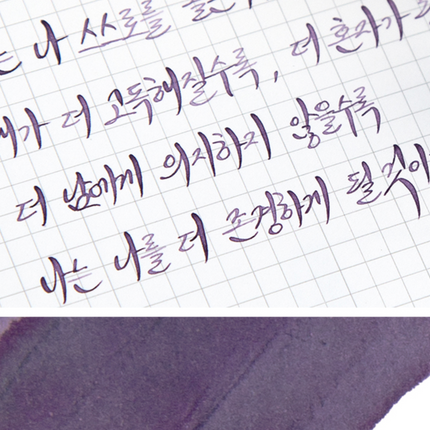 는 나 스스로를
내가 더 고독해질수록, 더 혼자가
더 남에게 의지하지 않을수록
나는 나를 더 존경하게 될 것이